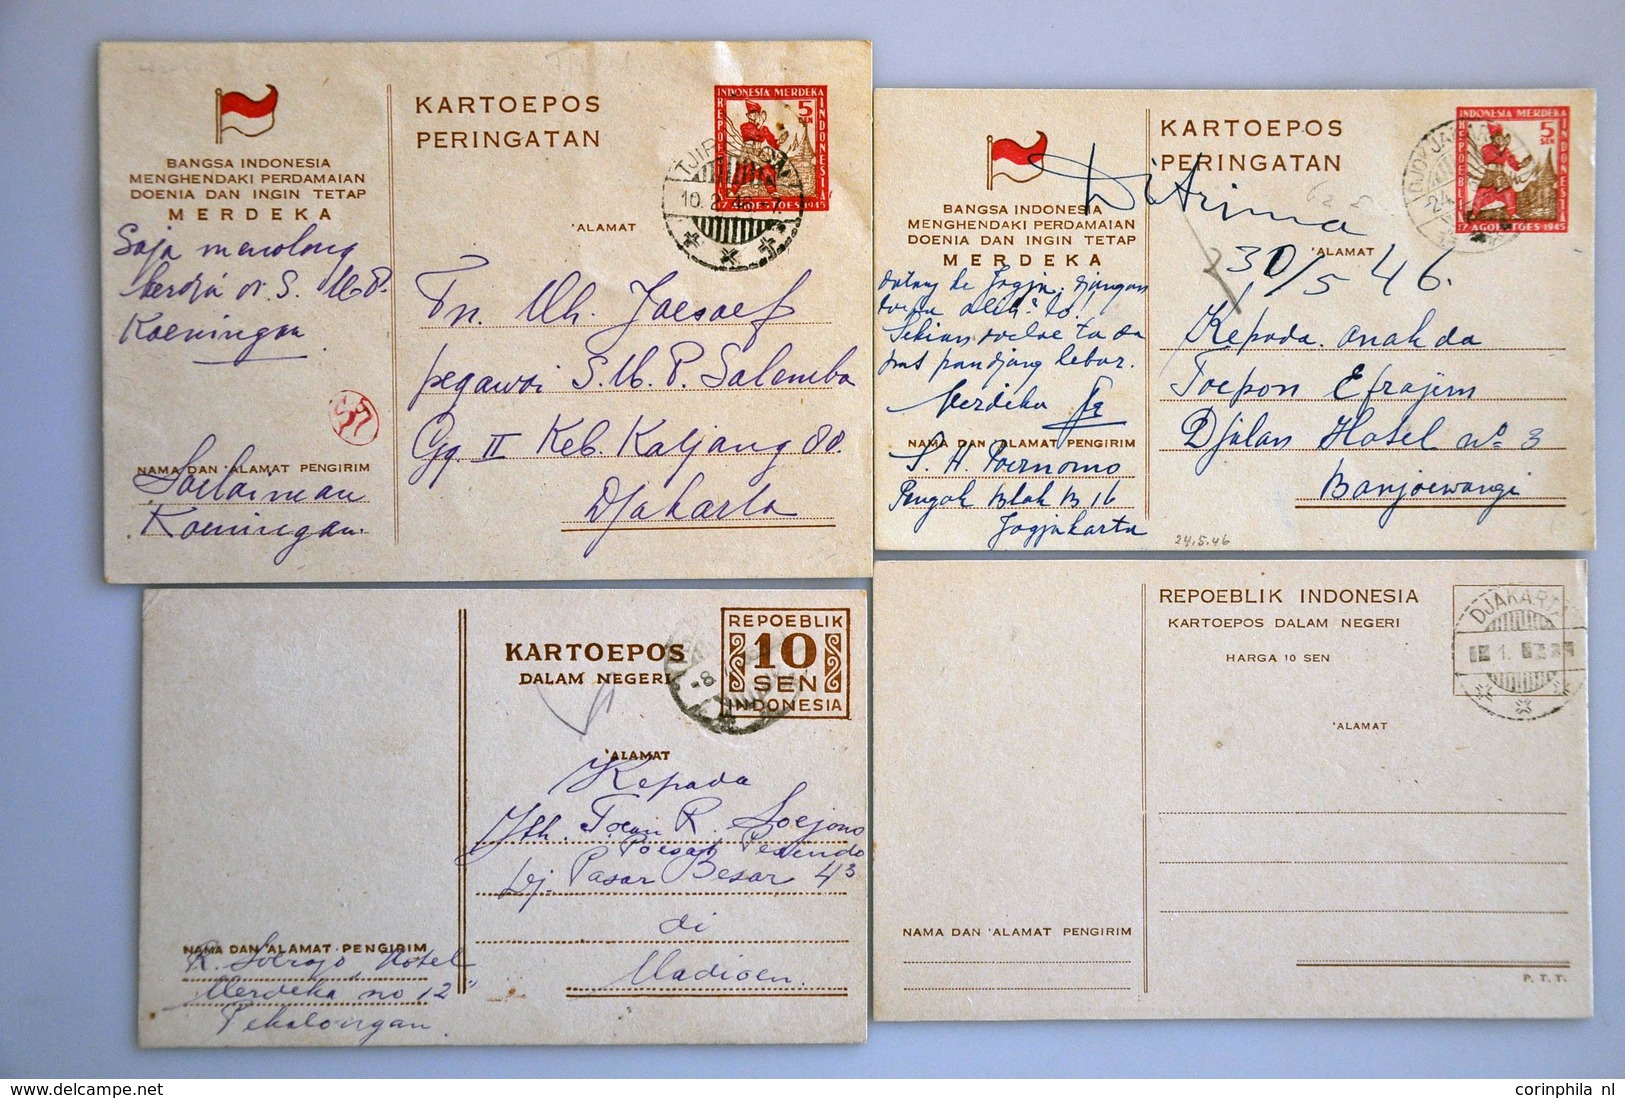 BANGSA INDONESIA
MENGHENDAKI PERDAMAIAN
DOENIA DAN INGIN TETAP
MERDEKA
Saja menolong
kerdja
Koeningan
NAMA DAN 'ALAMAT PENGIRIM
Soelaiman
Koeningan.
KARTOEPOS
PERINGATAN
INDONESIA MERDEKA
REPOEBLIK
INDONESIA
5
SEN
17 AGOESTOES 1945
10.2.46
'ALAMAT
Tn. Moh. Joesoef
pegawai S.M.P. Salemba
Gg. II Keb. Katjang 80.
Djakarta
BANGSA INDONESIA
MENGHENDAKI PERDAMAIAN
DOENIA DAN INGIN TETAP
MERDEKA
datang ke Jogja, djangan
Sekian
pandjang lebar.
Merdeka
NAMA DAN 'ALAMAT PENGIRIM
S. H. Poernomo
Pengok Blok B 16
Jogjakarta
KARTOEPOS
PERINGATAN
Diterima
30/5 46.
INDONESIA MERDEKA
REPOEBLIK
INDONESIA
5
SEN
17 AGOESTOES 1945
'ALAMAT
Kepada anakda
Toepon Efrajim
Djalan Hotel No 3
Banjoewangi
24.5.46
KARTOEPOS
DALAM NEGERI
REPOEBLIK
10
SEN
INDONESIA
'ALAMAT
Kepada
Jth. Toean R. Soejono
Poesat Pesindo
Dj. Pasar Besar 43
di
Madioen.
NAMA DAN 'ALAMAT PENGIRIM
R. Soerojo, Hotel
"Merdeka no 12"
Pekalongan.
REPOEBLIK INDONESIA
KARTOEPOS DALAM NEGERI
HARGA 10 SEN
DJAKARTA
'ALAMAT
NAMA DAN 'ALAMAT PENGIRIM
P. T. T.
corinphila nl